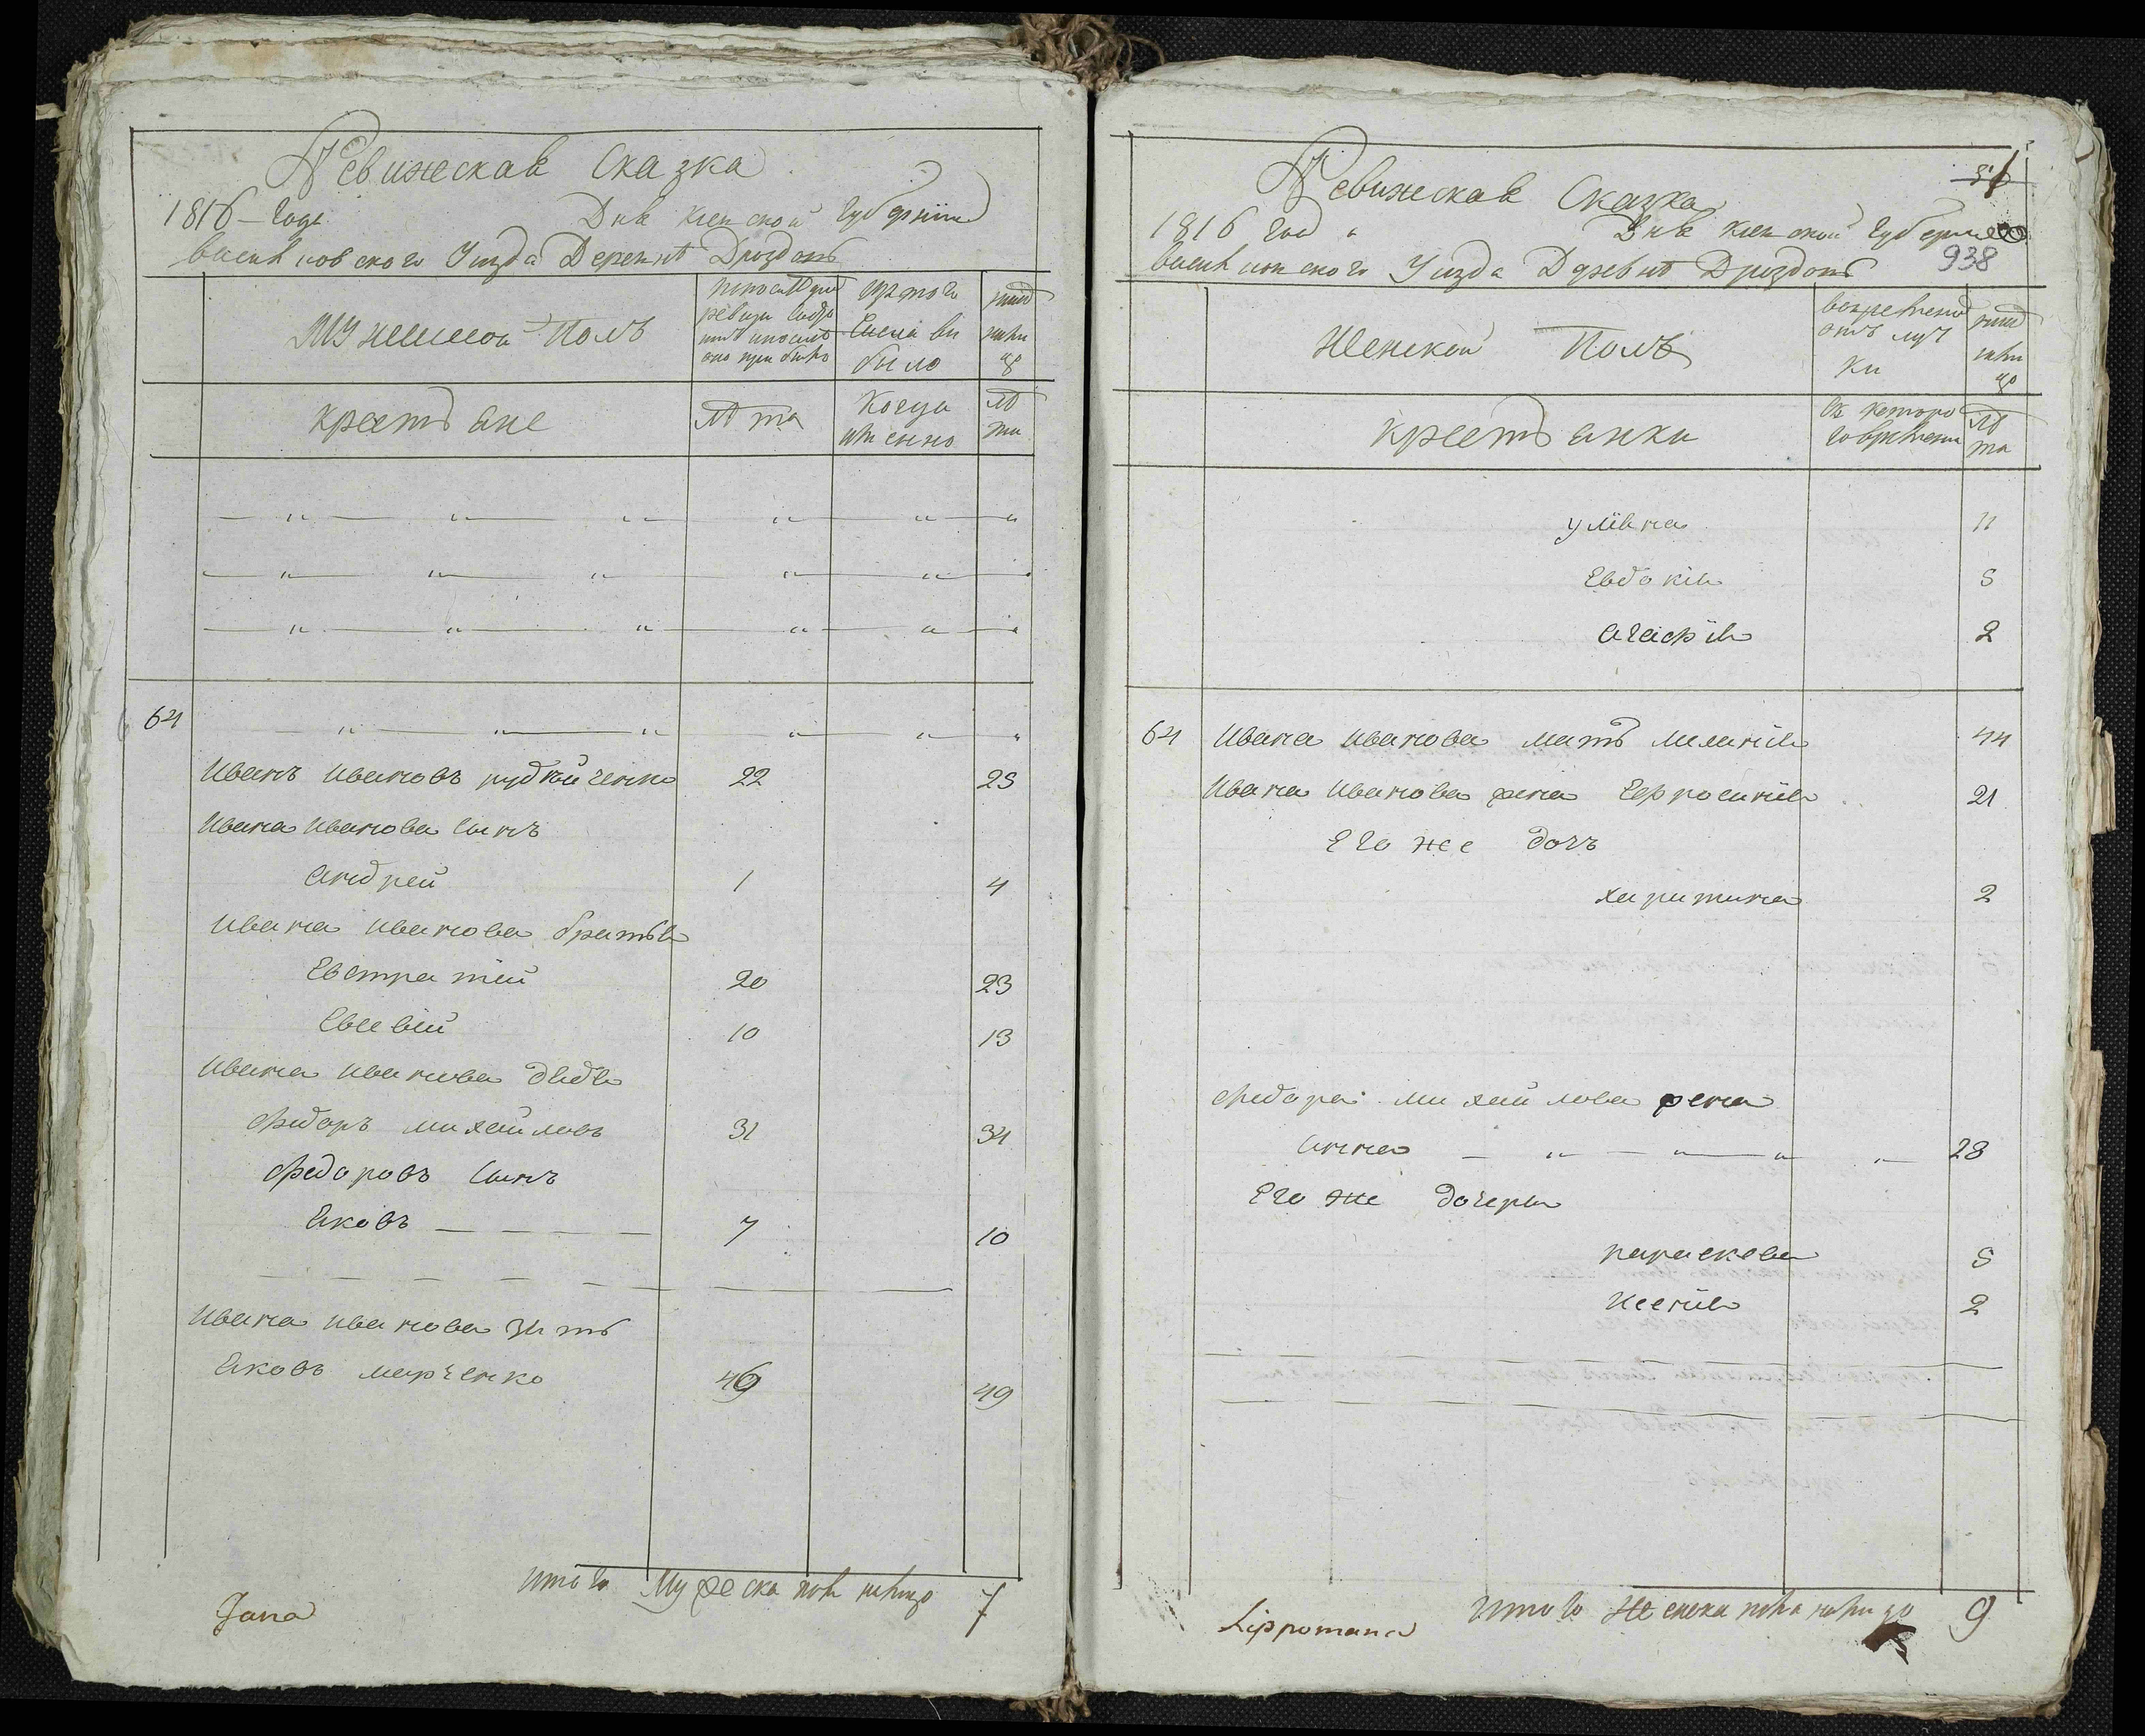 Ревижская Сказка
1816 Года Киевской Губернии
Васильковского Уезда Деревне Дроздовъ
Мужеской Полъ
Изъ того числа выбыло
лицо
Крестьяне
Лѣта
Когда именно
Лѣта
64
Иванъ Ивановъ 22 25
Ивана Иванова Сынъ
Андрей 1 4
Ивана Иванова братья
Евстратий 20 23
Евсевий 10 13
Ивана Иванова дядя
Федоръ Михайловъ 31 34
Федоровъ Сынъ
Яковъ 7 10
Ивана Иванова зять
Яковъ Марченко 46 49
Итого Мужеска пола налицо 7
Jana
Ревижская Сказка
1816 Год Киевской Губернии
938
Васильковского Уезда Деревне Дроздовъ
Женской Полъ
Во временной отлучки
Крестьянки
Съ которого времени
Лѣта
Улияна 11
Евдокия 5
Агафия 2
64 Ивана Иванова мать Мелания 44
Ивана Иванова жена Ефросиния 21
Его же дочь
Харитина 2
Федора Михайлова жена
Анна 28
Его же дочери
Параскева 5
Ксения 2
Итого Женска пола налицо 9
Lippomana